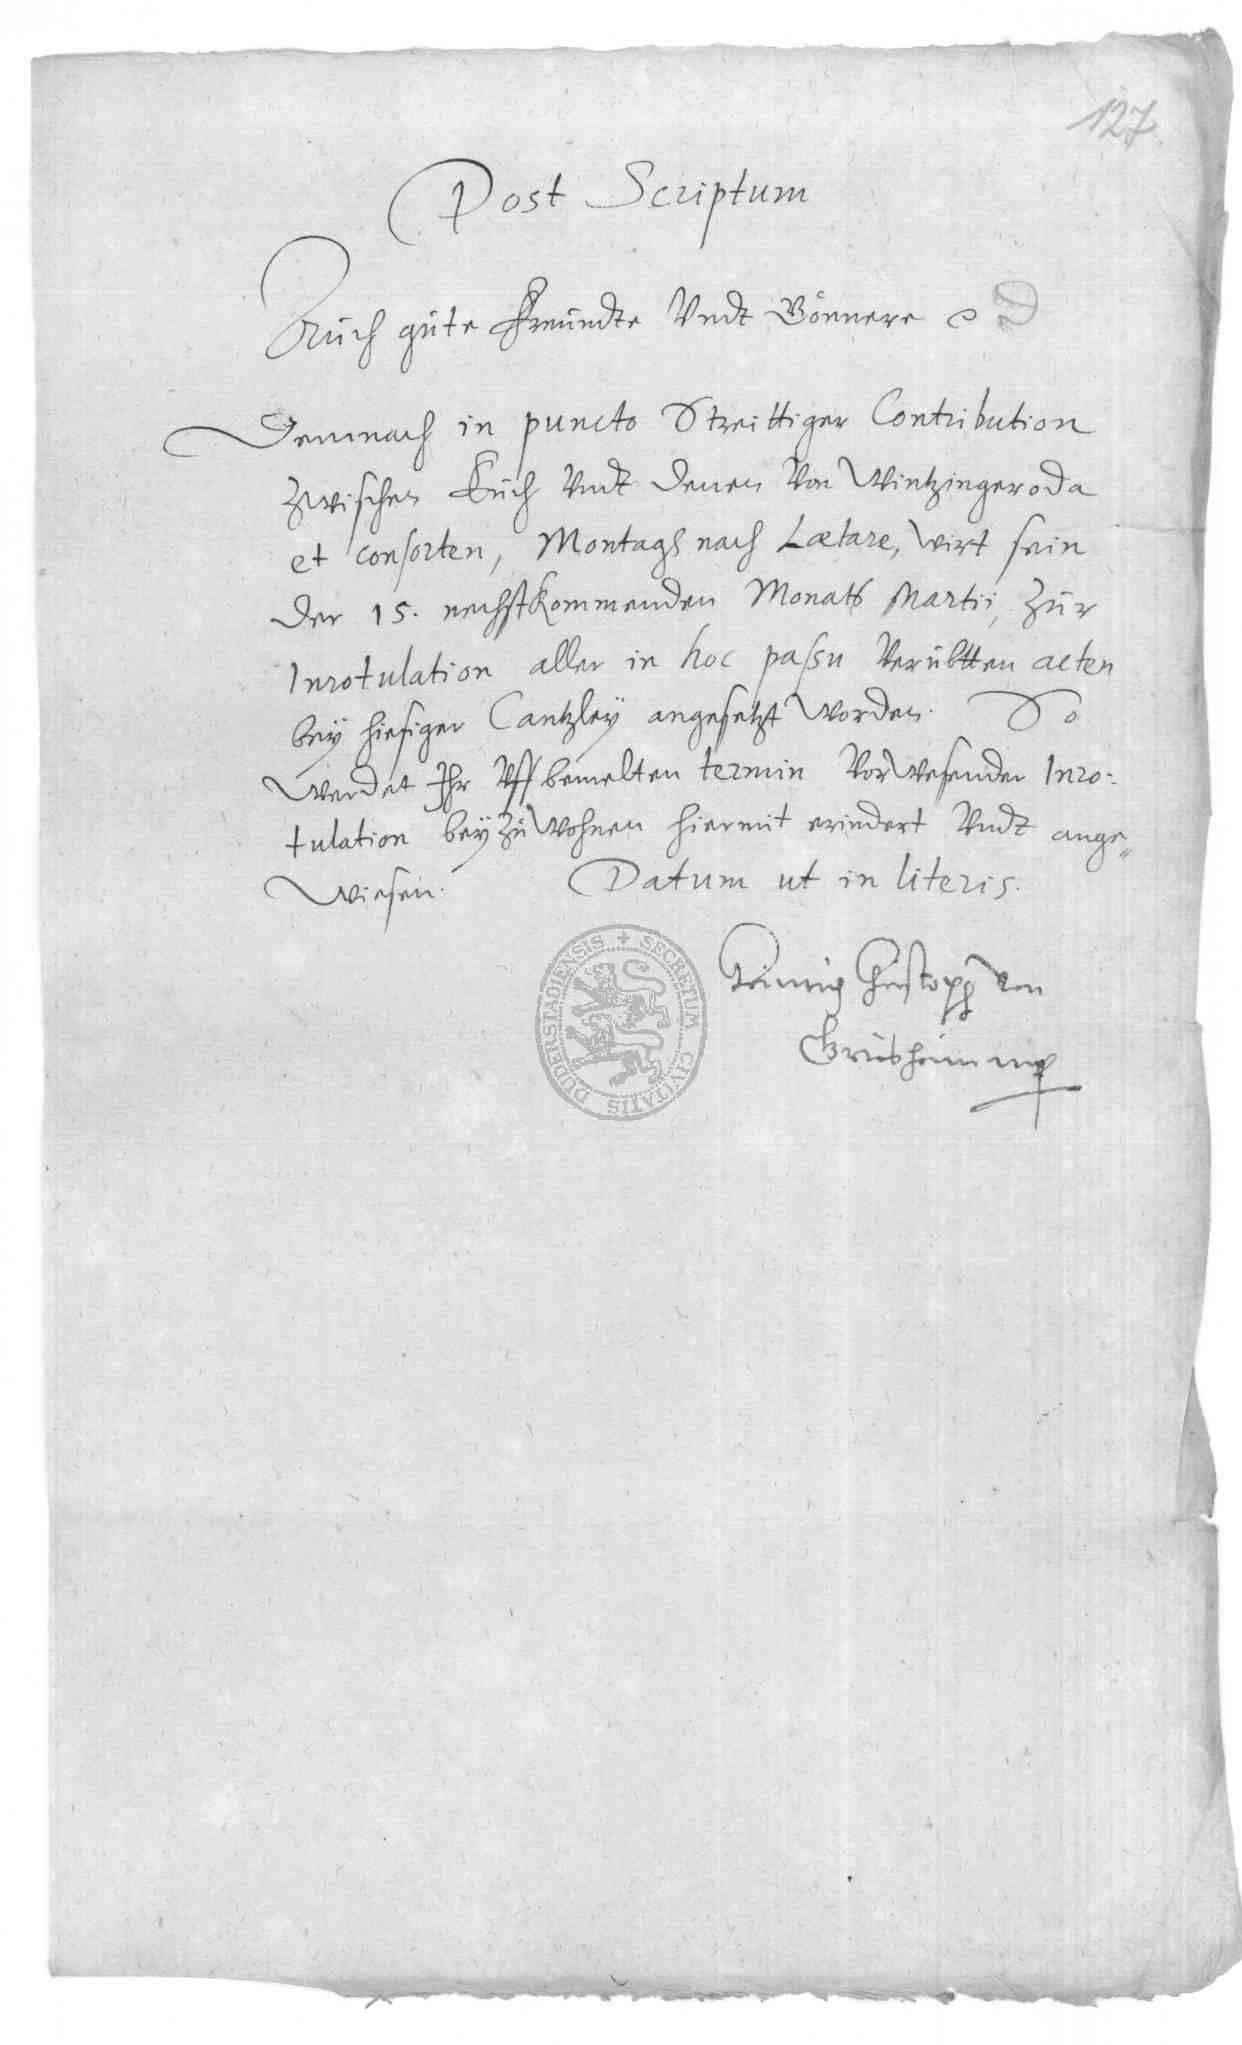 127
Post Scriptum
Auch gúte Freúndte Vndt Gönnere
Demnach in puncto Streittiger Contribution
zwischen Eúch Vndt denen Von Wintzingeroda
et consorten, Montags nach Lætare, wirt sein
der 15. nechstkommenden Monats Martii, zúr
Inrotulation aller in hoc passu Verúbtten acten
beÿ hiesiger Cantzleÿ angesetzt worden. So
werdet Ihr Vff bemelten termin Vorwesender Inro-
tulation beÿzúwohnen hiermit erindert Vndt ange-
wiesen. Datum ut in literis.
Heinrich Christoph von
Griesheim mp
SECRETUM CIVITATIS DUDERSTADIENSIS